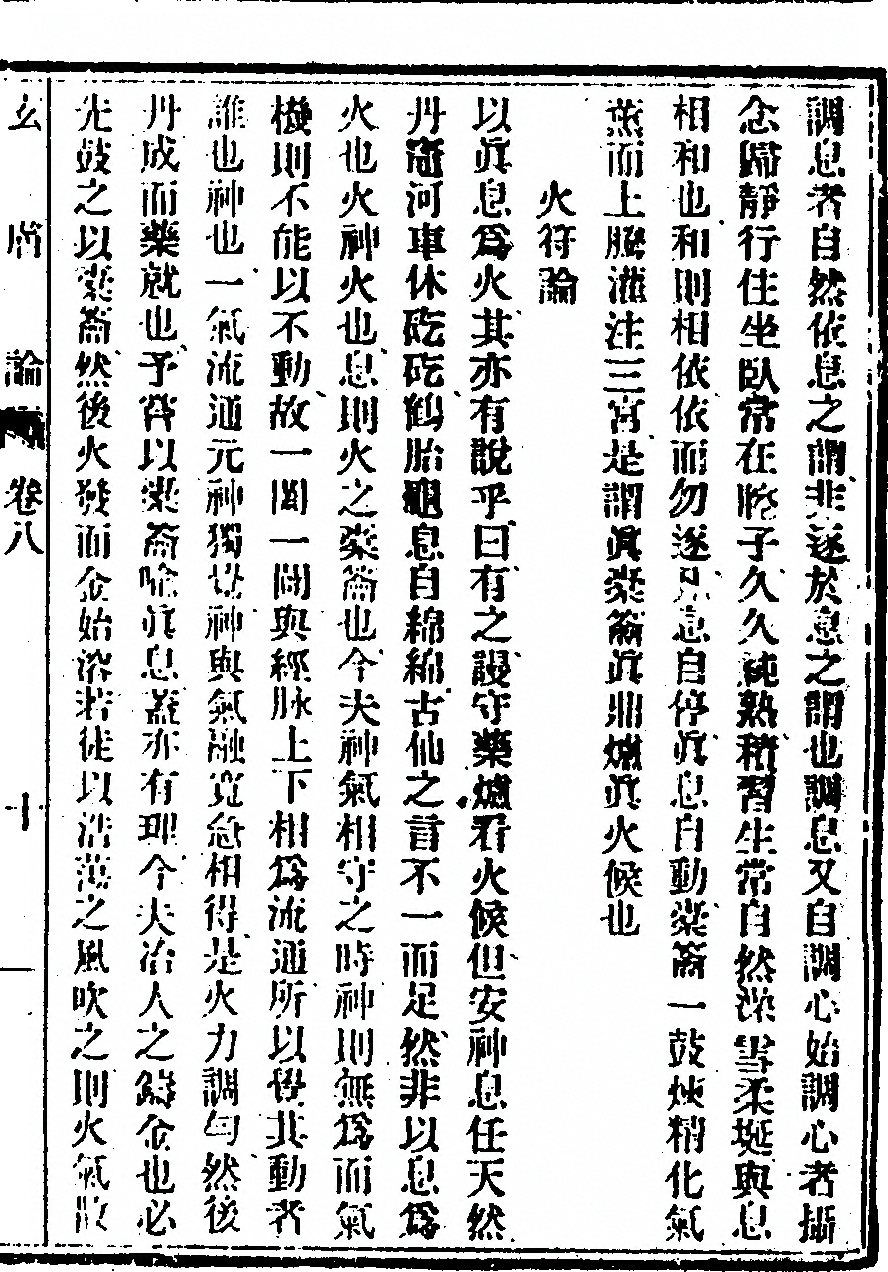 調息者自然依息之謂非逐於息之謂也調息又自調心始調心者攝
念歸靜行住坐臥常在腔子久久純熟積習生常自然澡雪柔埏與息
相和也和則相依依而勿逐凡息自停眞息自動槖籥一鼓煉精化氣
薰而上騰灌注三宮是謂眞槖籥眞鼎爐眞火候也
火符論
以眞息爲火其亦有說乎曰有之謾守藥爐看火候但安神息任天然
丹竈河車休矻矻鶴胎龜息自綿綿古仙之言不一而足然非以息爲
火也火神火也息則火之槖籥也今夫神氣相守之時神則無爲而氣
機則不能以不動故一闔一闢與經脉上下相爲流通所以覺其動者
誰也神也一氣流通元神獨覺神與氣融寬急相得是火力調勻然後
丹成而藥就也予嘗以槖籥喻眞息蓋亦有理今夫冶人之鑄金也必
先鼓之以槖籥然後火發而金始溶若徒以浩蕩之風吹之則火氣散
玄膚論 卷八 十